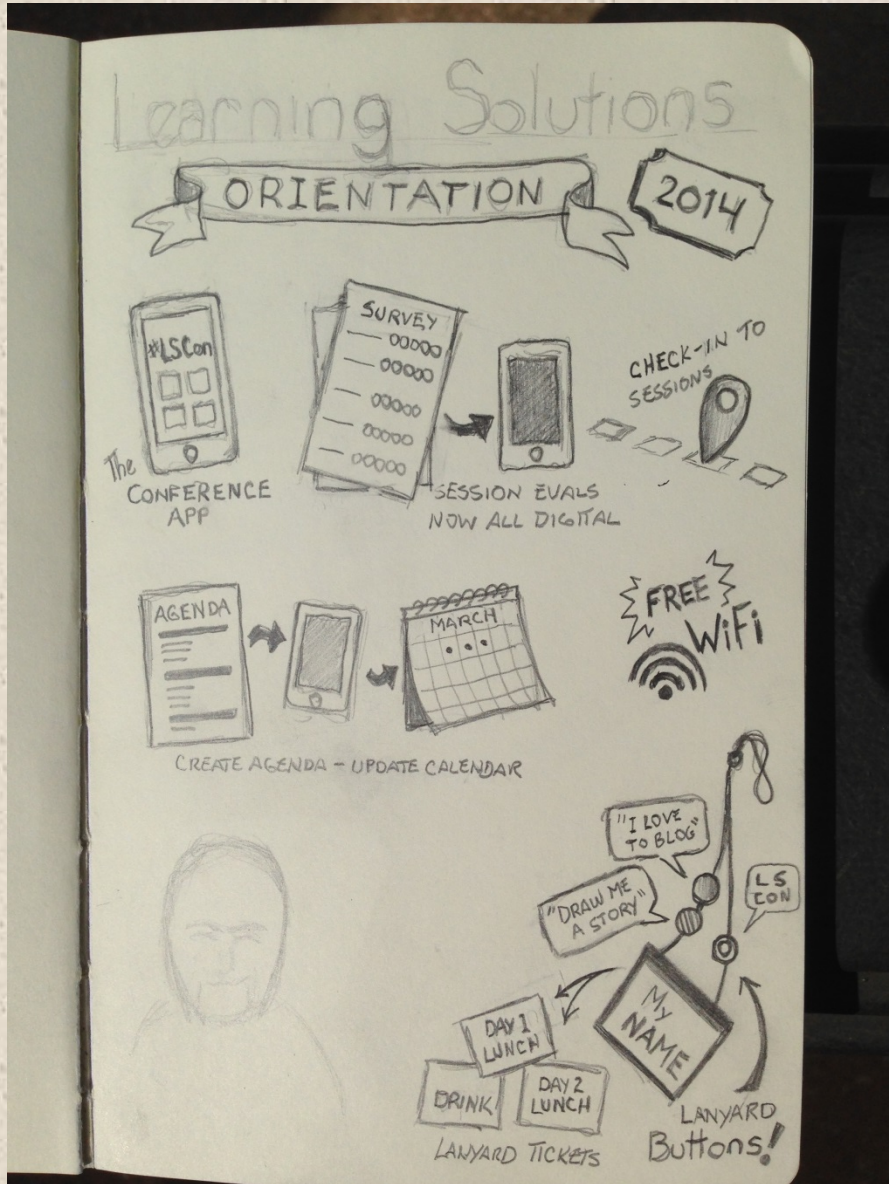 Learning Solutions
ORIENTATION
2014
#LSCon
The
CONFERENCE
APP
SURVEY
SESSION EVALS
NOW ALL DIGITAL
CHECK-IN TO
SESSIONS
AGENDA
MARCH
CREATE AGENDA - UPDATE CALENDAR
FREE
WiFi
"I LOVE
TO BLOG"
"DRAW ME
A STORY"
LS
CON
MY
NAME
DAY 1
LUNCH
DRINK
DAY 2
LUNCH
LANYARD TICKETS
LANYARD
Buttons!